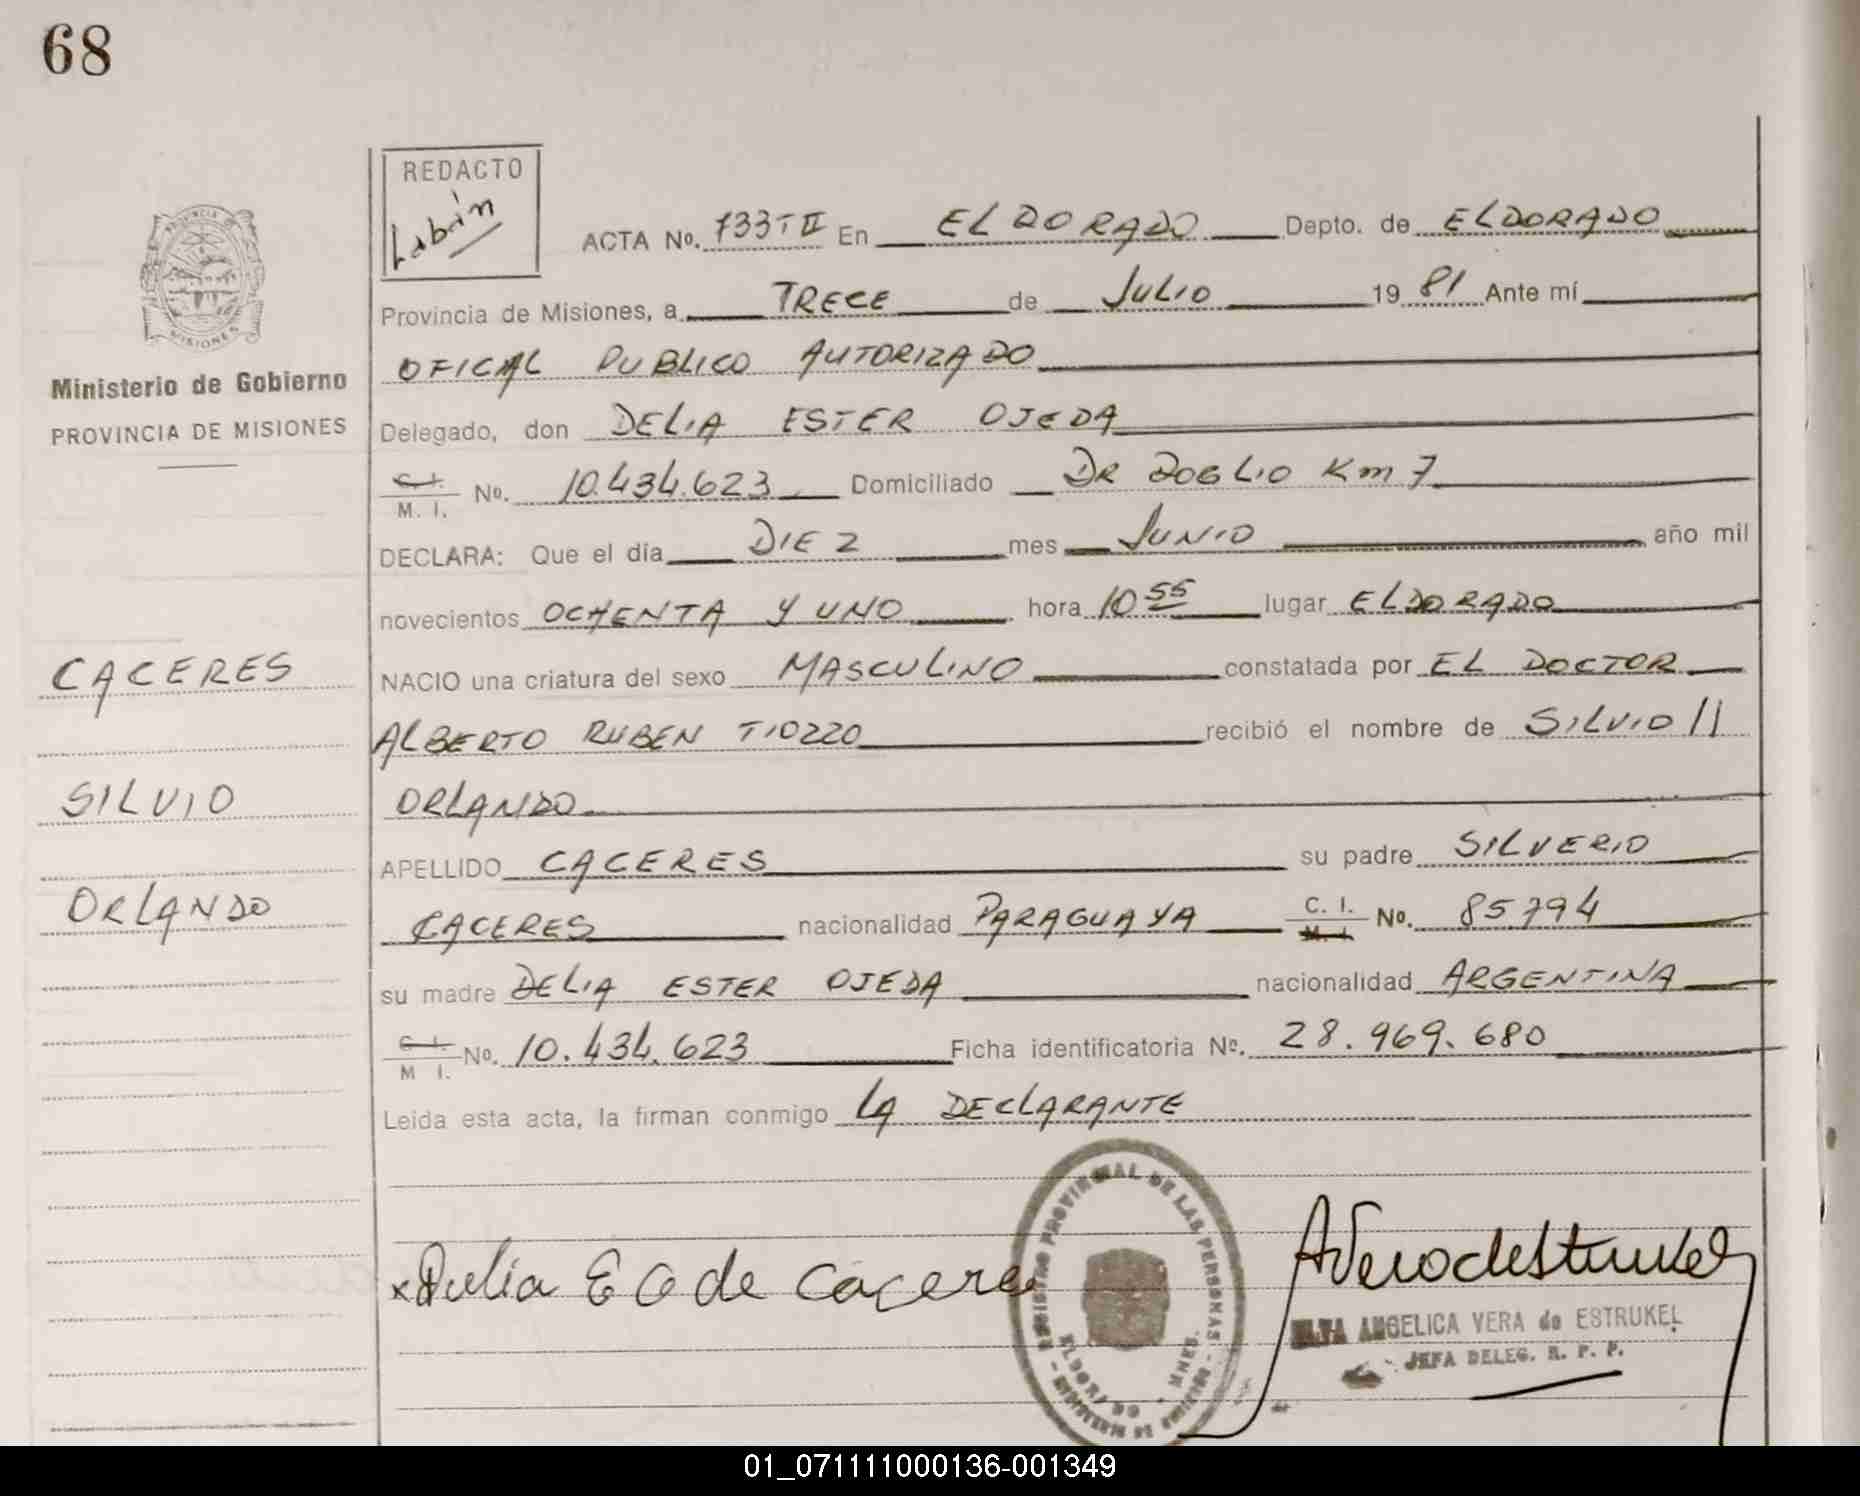 68
REDACTO
Labrin
ACTA No. 733 T II En EL DORADO Depto. de ELDORADO
Provincia de Misiones, a TRECE de JULIO 19 81 Ante mí
OFICIAL PUBLICO AUTORIZADO
Delegado, don DELIA ESTER OJEDA
C. I.
M. I. No. 10.434.623 Domiciliado DR DOGLIO Km 7
DECLARA: Que el día DIEZ mes JUNIO año mil
novecientos OCHENTA Y UNO hora 10 55 lugar ELDORADO
NACIO una criatura del sexo MASCULINO constatada por EL DOCTOR
ALBERTO RUBEN TIOZZO recibió el nombre de SILVIO //
ORLANDO
APELLIDO CACERES su padre SILVERIO
CACERES nacionalidad PARAGUAYA C. I. No. 85794
M. I.
su madre DELIA ESTER OJEDA nacionalidad ARGENTINA
C. I.
M I. No. 10.434.623 Ficha identificatoria No. 28.969.680
Leída esta acta, la firman conmigo LA DECLARANTE
PROVINCIA DE
MISIONES
Ministerio de Gobierno
PROVINCIA DE MISIONES
CACERES
SILVIO
ORLANDO
x Delia E O de Cacere
REGISTRO PROVINCIAL DE LAS PERSONAS
ELDORADO - MNES.
AVeradeEstrukel
ANGELICA VERA de ESTRUKEL
JEFA DELEG. R. P. P.
01_071111000136-001349